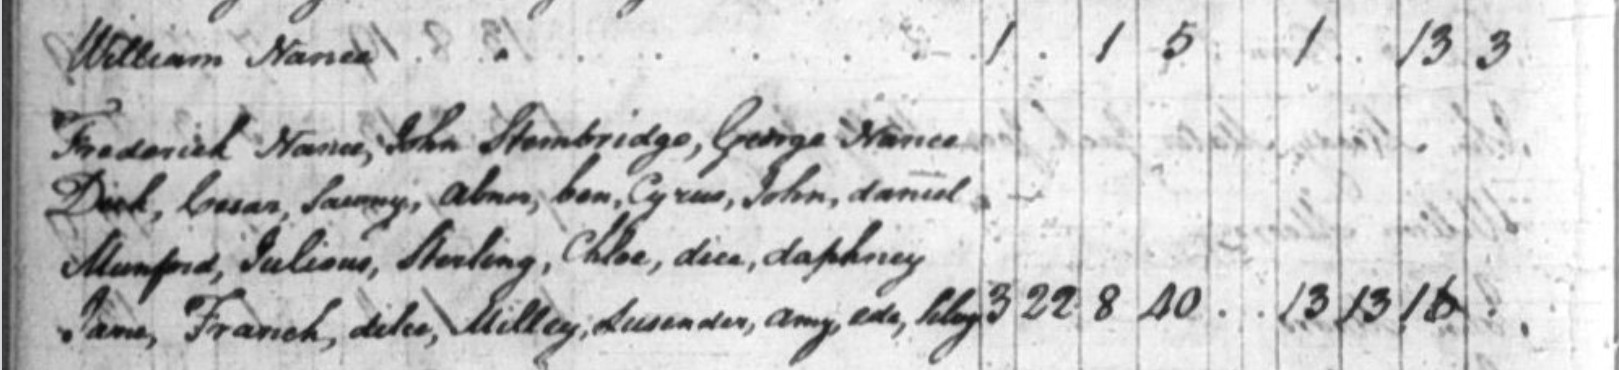 William Nance . . . . . . . 1 . 1 5 1 . . 13 3
Frederick Nance, John Stembridge, George Nance
Dick, Cesar, Sawny, abner, ben, Cyrus, John, daniel
Munford, Julious, Sterling, Chloe, dice, daphney
Jane, Franck, dilce, Milley, Lusender, amy, ede, 3 22 8 40 . . 13 13 16